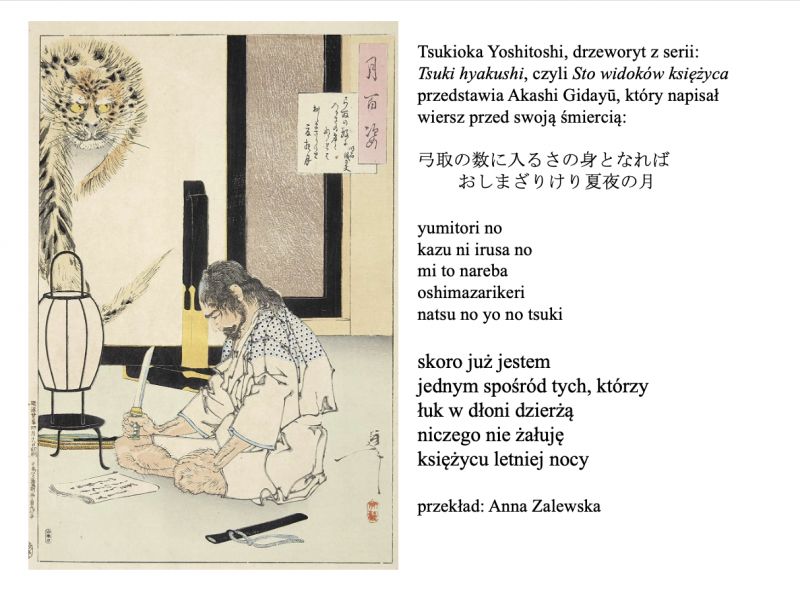 月百姿
Tsukioka Yoshitoshi, drzeworyt z serii:
Tsuki hyakushi, czyli Sto widoków księżyca
przedstawia Akashi Gidayū, który napisał
wiersz przed swoją śmiercią:
弓取の数に入るさの身となれば
おしまざりけり夏夜の月
yumitori no
kazu ni irusa no
mi to nareba
oshimazarikeri
natsu no yo no tsuki
skoro już jestem
jednym spośród tych, którzy
łuk w dłoni dzierżą
niczego nie żałuję
księżycu letniej nocy
przekład: Anna Zalewska